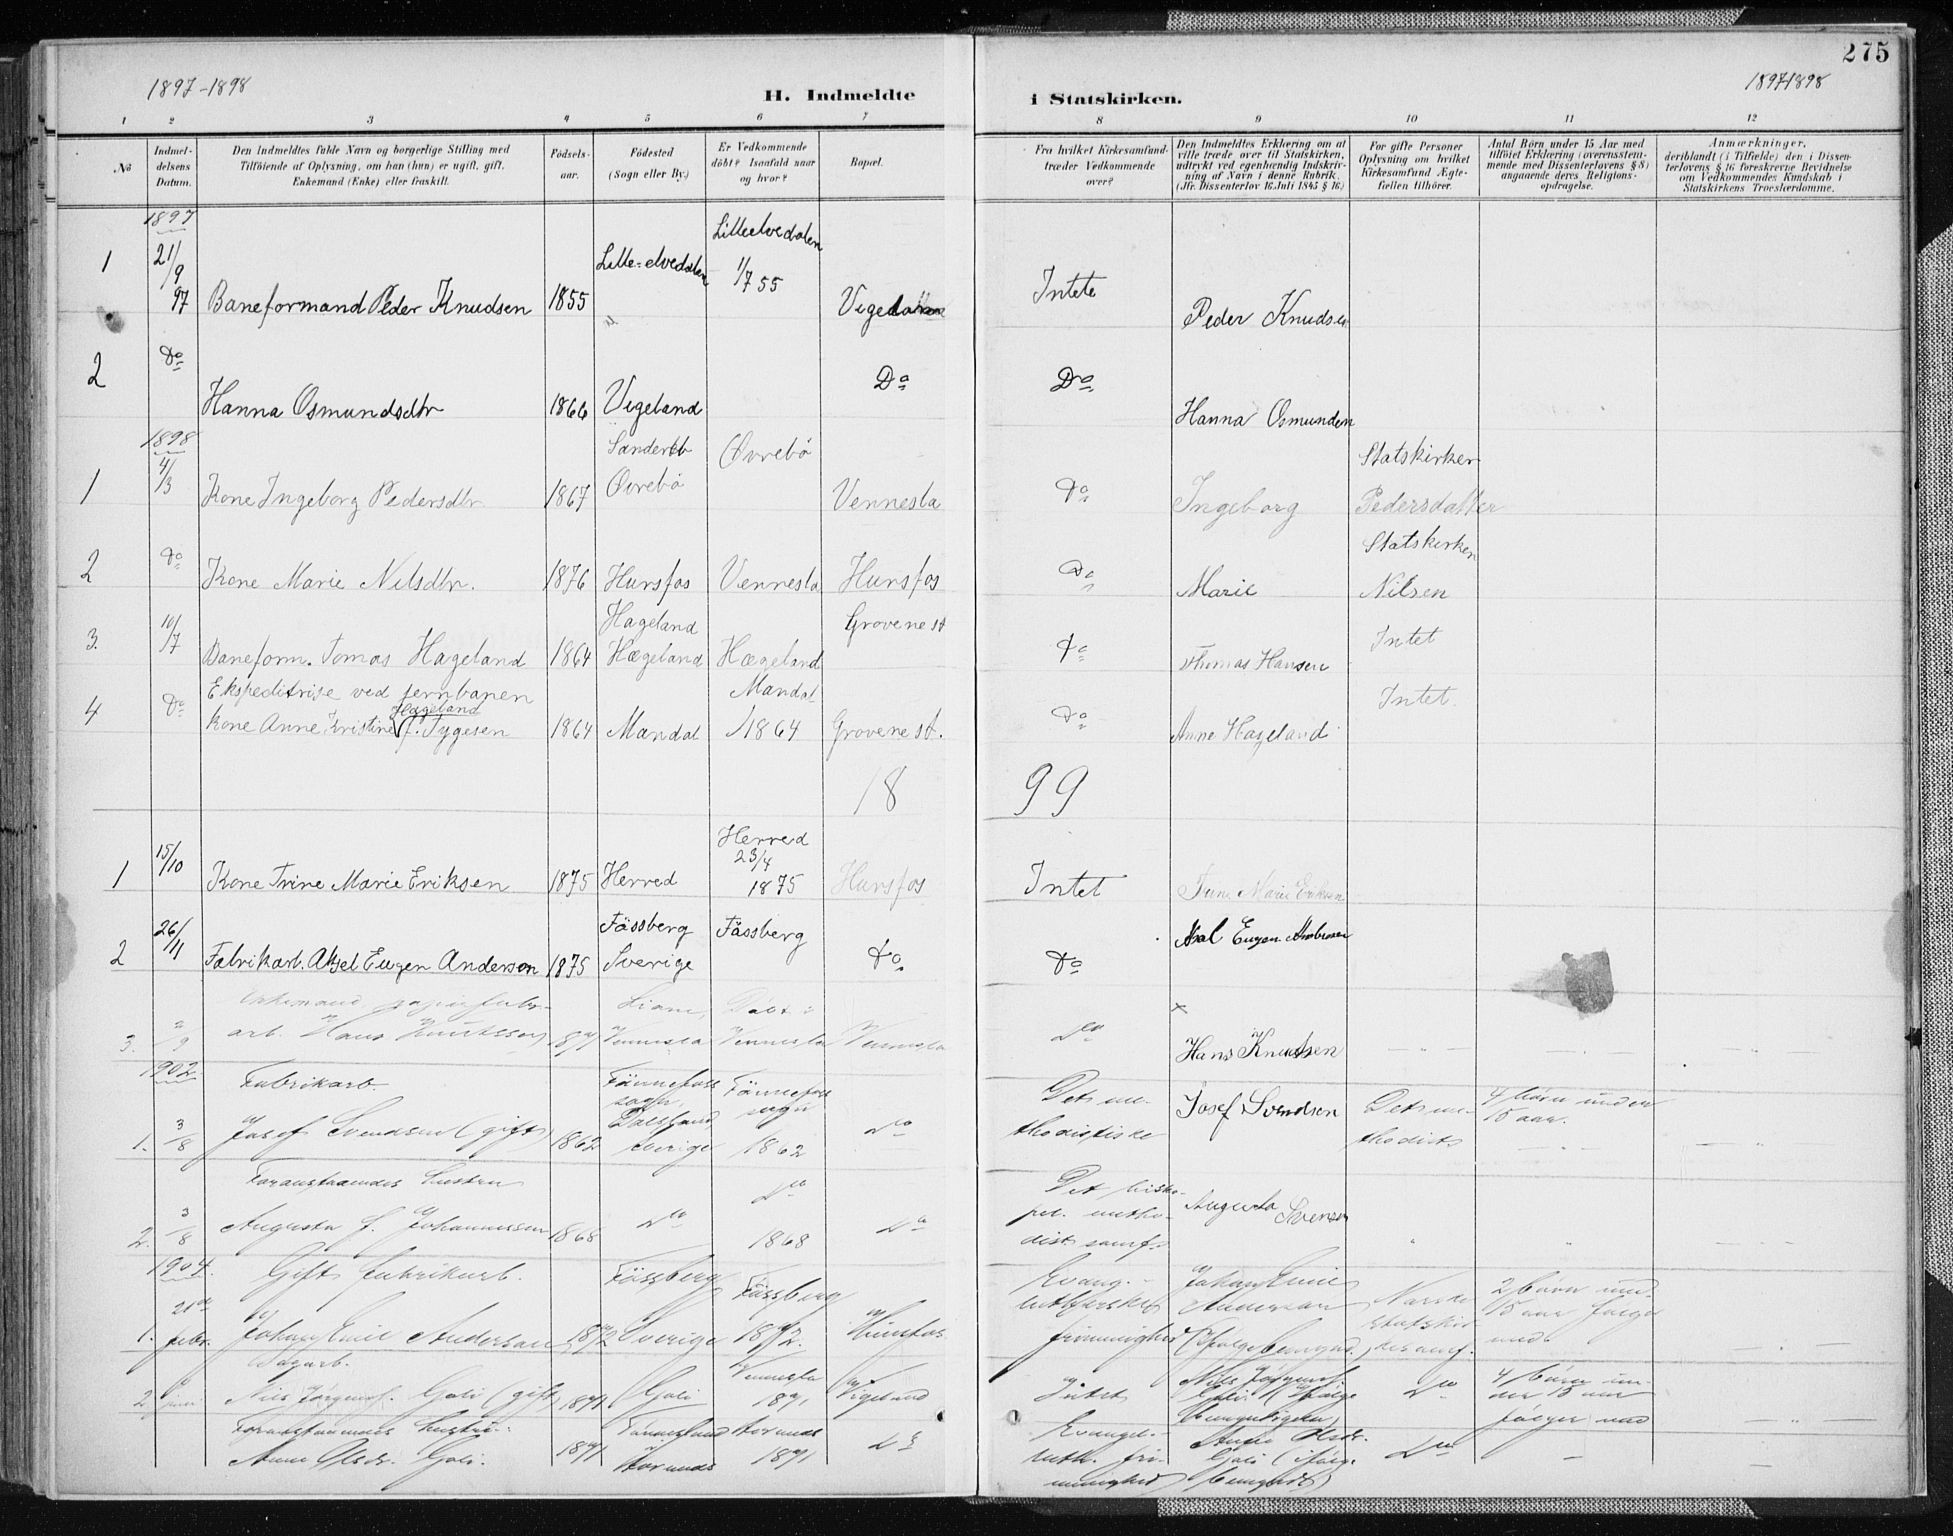 275
1897-1898
1897-1898
H. Indmeldte i Statskirken.
1 2 3 4 5 6 7 8 9 10 11 12
No
Indmeldelsens Datum.
Den Indmeldtes fulde Navn og borgerlige Stilling med Tilföiende af Oplysning, om han (hun) er ugift, gift, Enkemand (Enke) eller fraskilt.
Födselsaar.
Födested (Sogn eller By.)
Er Vedkommende döbt? Isaafald naar og hvor?
Bopæl.
Fra hvilket Kirkesamfund træder Vedkommende over?
Den Indmeldtes Erklæring om at ville træde over til Statskirken, udtrykt ved egenhændig Indskrivning af Navn i denne Rubrik. (Jfr. Dissenterlov 16 Juli 1845 § 16)
For gifte Personer Oplysning om hvilket Kirkesamfund Ægtefællen tilhörer.
Antal Börn under 15 Aar med tilföiet Erklæring (overensstemmende med Dissenterlovens § 8) angaaende deres Religionsopdragelse.
Anmærkninger, deriblandt (i Tilfælde) den i Dissenterlovens § 16 foreskrevne Bevidnelse om Vedkommendes Kundskab i Statskirkens Troeslærdomme.
1897
1 21/9 97 Baneformand Peder Knudsen 1855 Lille-elvedalen Lilleelvedalen 1/7 55 Intete Peder Knudsen
2 Do Hanna Osmundsdtr 1866 Vigeland Do Do Hanna Osmundsen
1898
1 4/3 Kone Ingeborg Pedersdtr 1867 Øvrebö Øvrebö Vennesla Do Ingeborg Pedersdatter Statskirken
2 Do Kone Marie Nilsdtr. 1876 Hunsfos Vennesla Hunsfos Do Marie Nilsen Statskirken
3. 10/7 Baneform. Tomas Hageland 1864 Hageland Hægeland Hægeland Grovene st Do Thomas Hansen Intet
4 Do Ekspeditrise ved jernbanen kone Anne Kristine Hageland f. Tygesen 1864 Mandal Mandal 1864 Grovene st. Do Anne Hageland Intet
18 99
1 15/10 Kone Trine Marie Eriksen 1875 Herred Herred 23/4 1875 Hunsfos Intet Trine Marie Eriksen
2 26/11 Fabrikarb. Aksel Eugen Anderson 1875 Fässberg Sverige Fässberg Do Do
3. Enkemand, papirfabr. arb. Hans Knutssen Vennesla Vennesla Vennesla Do x Hans Knutsen
1902
1. 3/8 Fabrikarb. Josef Svendsen (gift) 1862 sogn, Dalsland Sverige sogn 1862 Do Det methodistiske Josef Svendsen Det methodist. 4 börn under 15 aar.
2. 3/8 Foranstaaendes hustru Augusta f. Johannessen 1868 Do Do 1868 Do Det bisko- pel. methodist samf. Augusta Svensen
1904.
1. 21de febr. Gift fabrikarb. Johan Emil Anderson 1872 Fässberg Sverige Fässberg 1872. Hunsfos Evang. lutherske frimenighed Johan Emil Anderson Norske statskirkesamf. 2 börn und. 15 aar
2 juni Dagarb. Nils Jörgens. Goli (gift) 1871 Goli Vennesla 1871 Vigeland Intet Nils Jörgens. Goli Do 4 börn under 15 aar
Foranstaaendes hustru Anne Olsdr. Goli. 1871 1871 Do Evangel. luth. frimenighed Anne Olsdr. Goli Do